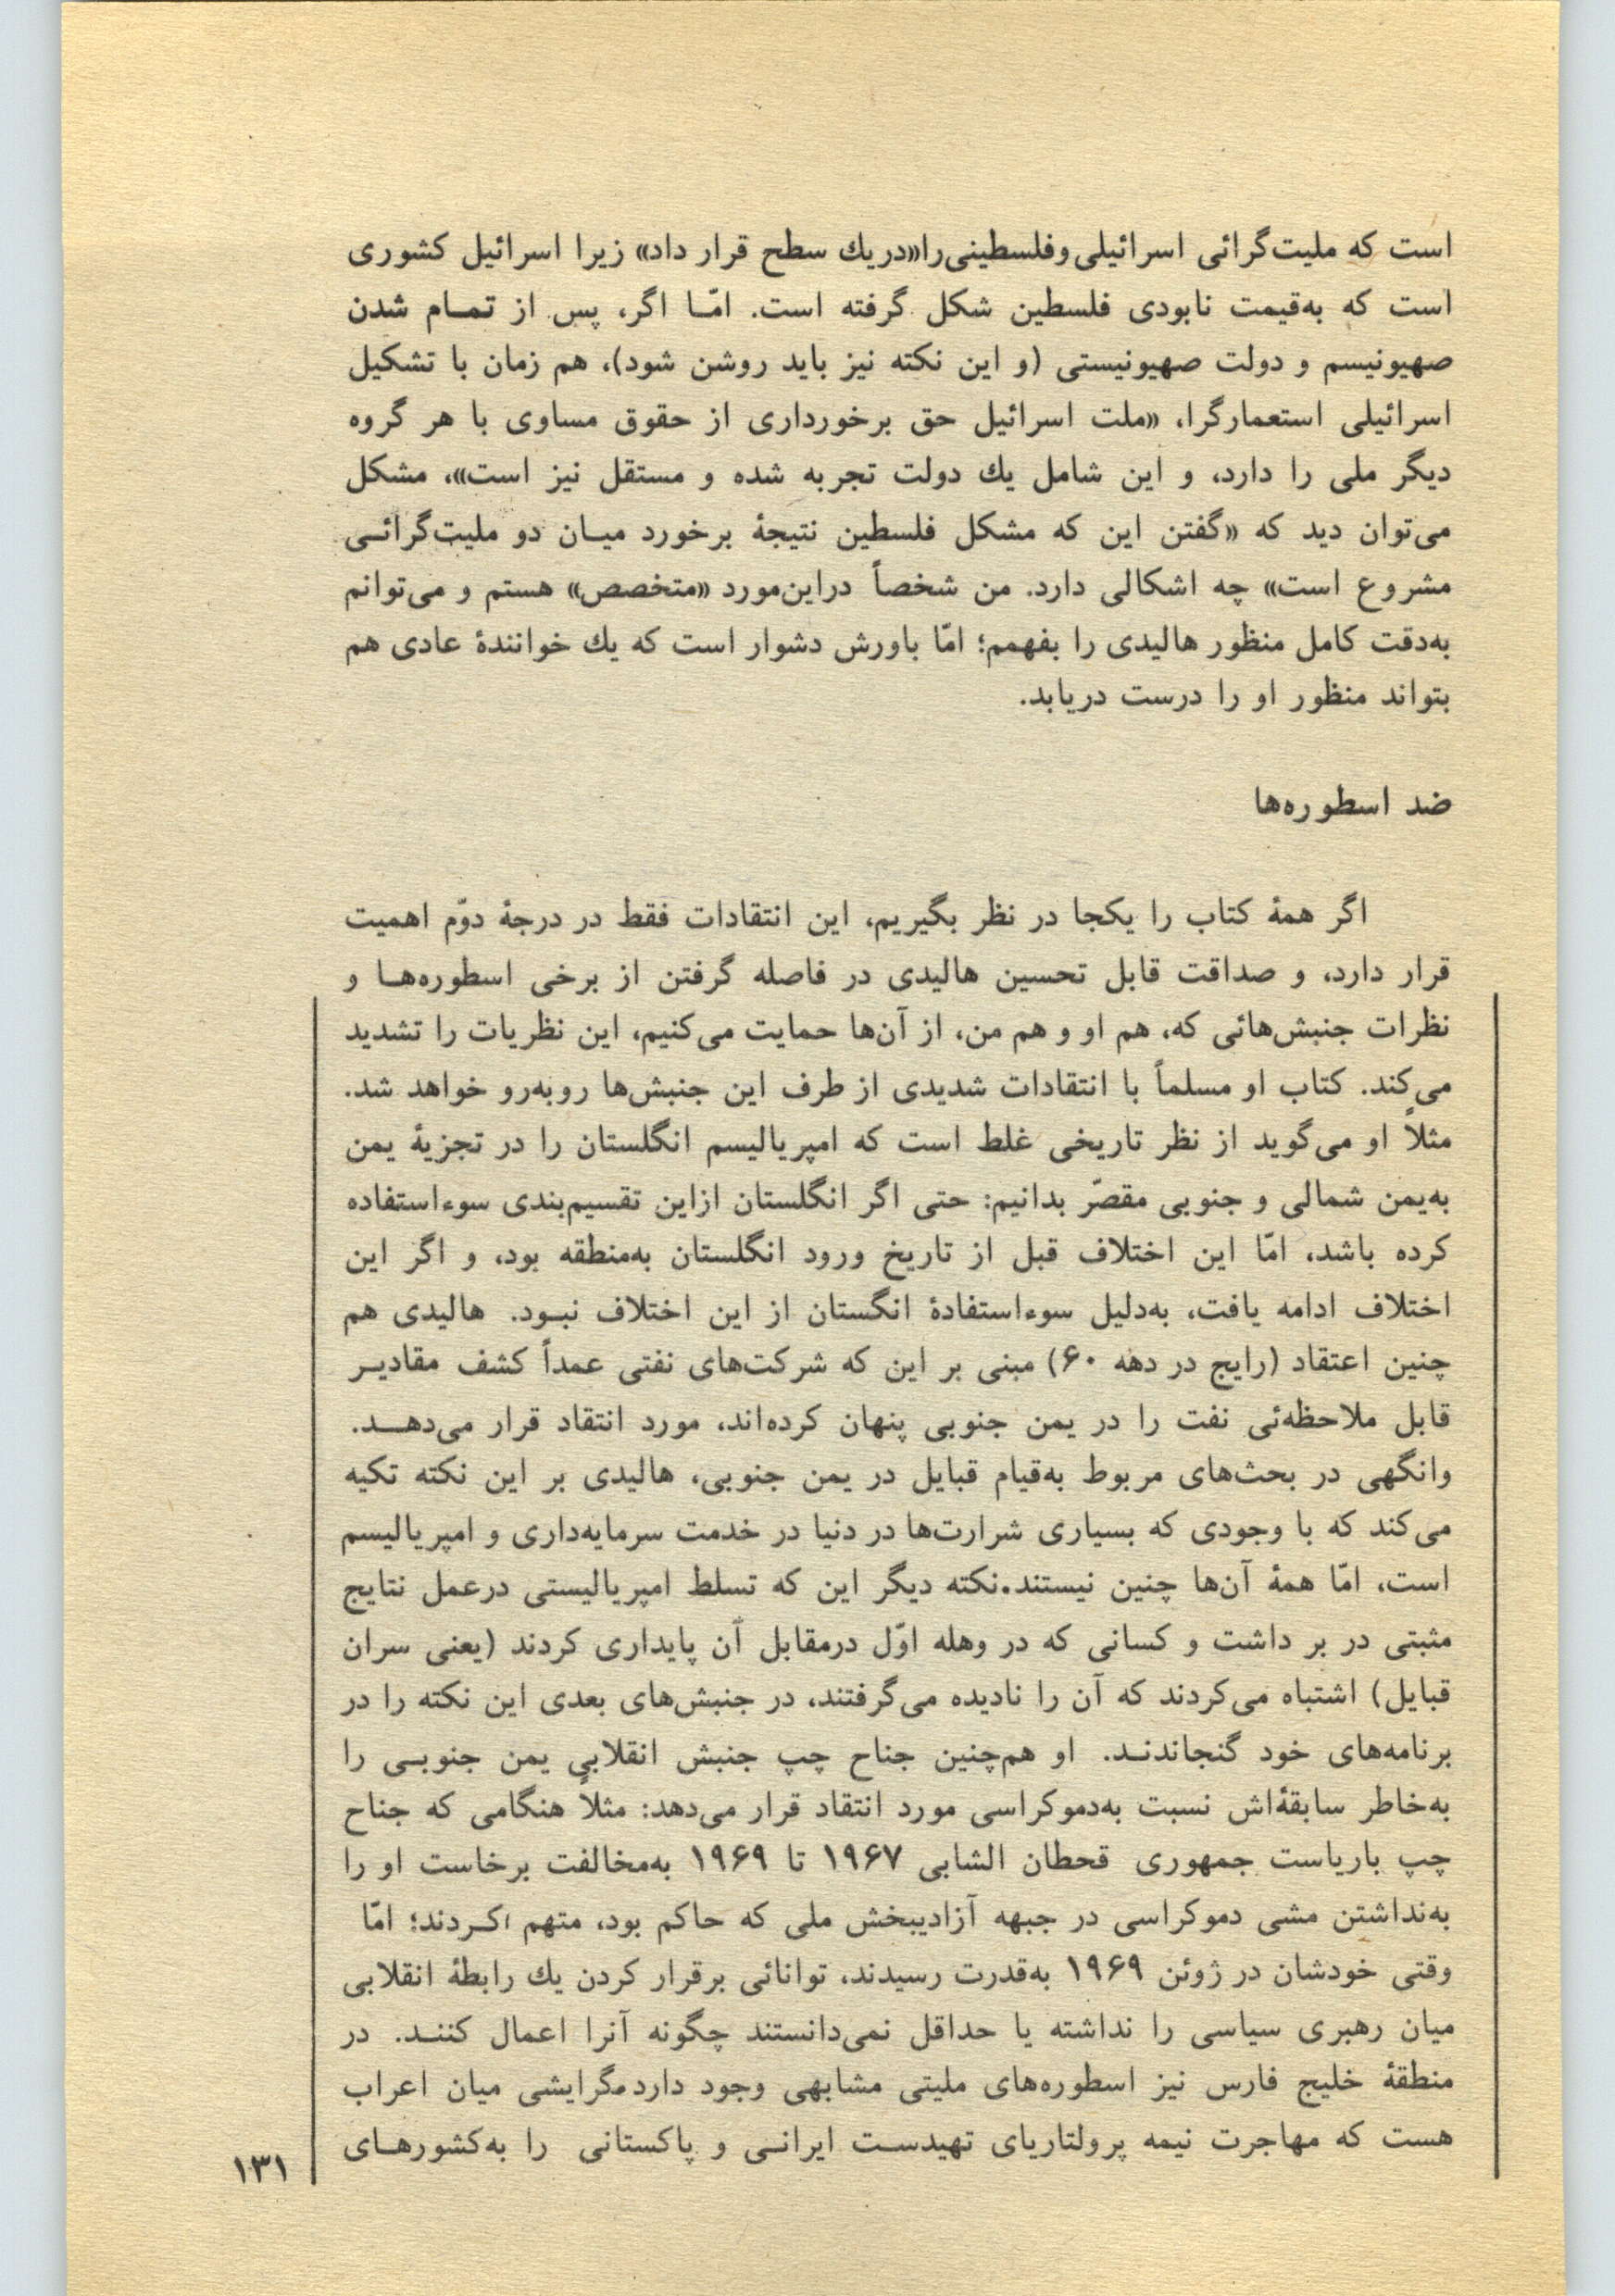 است که ملیت‌گرائی اسرائیلی‌وفلسطینی‌را«دریك سطح قرار داد» زیرا اسرائیل کشوری
است که به‌قیمت نابودی فلسطین شکل گرفته است. امّـا اگر، پس از تمـام شدن
صهیونیسم و دولت صهیونیستی (و این نکته نیز باید روشن شود)، هم زمان با تشکیل
اسرائیلی استعمارگرا، «ملت اسرائیل حق برخورداری از حقوق مساوی با هر گروه
دیگر ملی را دارد، و این شامل یك دولت تجربه شده و مستقل نیز است»، مشکل
می‌توان دید که «گفتن این که مشکل فلسطین نتیجهٔ برخورد میـان دو ملیت‌گرائـی
مشروع است» چه اشکالی دارد. من شخصاً دراین‌مورد «متخصص» هستم و می‌توانم
به‌دقت کامل منظور هالیدی را بفهمم؛ امّا باورش دشوار است که یك خوانندهٔ عادی هم
بتواند منظور او را درست دریابد.
ضد اسطوره‌ها
اگر همهٔ کتاب را یکجا در نظر بگیریم، این انتقادات فقط در درجهٔ دوّم اهمیت
قرار دارد، و صداقت قابل تحسین هالیدی در فاصله گرفتن از برخی اسطوره‌هـا و
نظرات جنبش‌هائی که، هم او و هم من، از آن‌ها حمایت می‌کنیم، این نظریات را تشدید
می‌کند. کتاب او مسلماً با انتقادات شدیدی از طرف این جنبش‌ها روبه‌رو خواهد شد.
مثلاً او می‌گوید از نظر تاریخی غلط است که امپریالیسم انگلستان را در تجزیهٔ یمن
به‌یمن شمالی و جنوبی مقصّر بدانیم: حتی اگر انگلستان ازاین تقسیم‌بندی سوءاستفاده
کرده باشد، امّا این اختلاف قبل از تاریخ ورود انگلستان به‌منطقه بود، و اگر این
اختلاف ادامه یافت، به‌دلیل سوءاستفادهٔ انگستان از این اختلاف نبـود. هالیدی هم
چنین اعتقاد (رایج در دهه ۶۰) مبنی بر این که شرکت‌های نفتی عمداً کشف مقادیـر
قابل ملاحظه‌ئی نفت را در یمن جنوبی پنهان کرده‌اند، مورد انتقاد قرار می‌دهـد.
وانگهی در بحث‌های مربوط به‌قیام قبایل در یمن جنوبی، هالیدی بر این نکته تکیه
می‌کند که با وجودی که بسیاری شرارت‌ها در دنیا در خدمت سرمایه‌داری و امپریالیسم
است، امّا همهٔ آن‌ها چنین نیستند.نکته دیگر این که تسلط امپریالیستی درعمل نتایج
مثبتی در بر داشت و کسانی که در وهله اوّل درمقابل آن پایداری کردند (یعنی سران
قبایل) اشتباه می‌کردند که آن را نادیده می‌گرفتند، در جنبش‌های بعدی این نکته را در
برنامه‌های خود گنجاندنـد. او هم‌چنین جناح چپ جنبش انقلابی یمن جنوبـی را
به‌خاطر سابقهٔ‌اش نسبت به‌دموکراسی مورد انتقاد قرار می‌دهد: مثلاً هنگامی که جناح
چپ باریاست جمهوری قحطان الشابی ۱۹۶۷ تا ۱۹۶۹ به‌مخالفت برخاست او را
به‌نداشتن مشی دموکراسی در جبهه آزادیبخش ملی که حاکم بود، متهم کـردند؛ امّا
وقتی خودشان در ژوئن ۱۹۶۹ به‌قدرت رسیدند، توانائی برقرار کردن یك رابطهٔ انقلابی
میان رهبری سیاسی را نداشته یا حداقل نمی‌دانستند چگونه آنرا اعمال کننـد. در
منطقهٔ خلیج فارس نیز اسطوره‌های ملیتی مشابهی وجود دارد.گرایشی میان اعراب
هست که مهاجرت نیمه پرولتاریای تهیدسـت ایرانـی و پاکستانی را به‌کشورهـای
۱۳۱